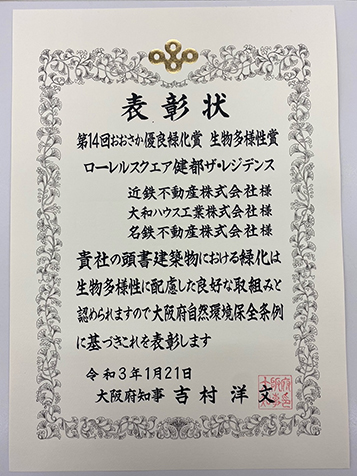 表彰状
第14回おおさか優良緑化賞 生物多様性賞
ローレルスクエア健都ザ・レジデンス
近鉄不動産株式会社様
大和ハウス工業株式会社様
名鉄不動産株式会社様
貴社の頭書建築物における緑化は
生物多様性に配慮した良好な取組みと
認められますので大阪府自然環境保全条例
に基づきこれを表彰します
令和3年1月21日
大阪府知事 吉村洋文